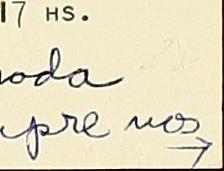 17 HS.
oda
pre nos